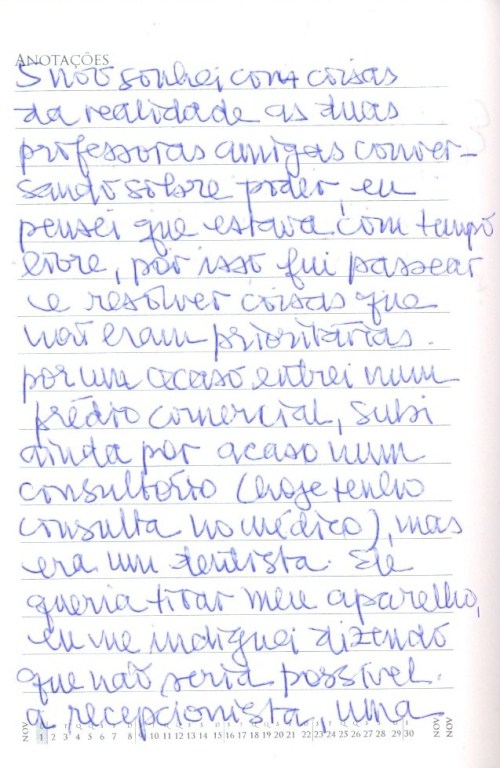 ANOTAÇÕES
5 nov sonhei com coisas
da realidade as duas
professoras amigas conver-
sando sobre poder, eu
pensei que estava com tempo
livre, por isso fui passear
e resolver coisas que
não eram prioritárias.
por um acaso entrei num
prédio comercial, subi
ainda por acaso num
consultório (hoje tenho
consulta no médico), mas
era um dentista. Ele
queria tirar meu aparelho,
eu me indignei dizendo
que não seria possível.
a recepcionista, uma
NOV 1 2 3 4 5 6 7 8 9 10 11 12 13 14 15 16 17 18 19 20 21 22 23 24 25 26 27 28 29 30 NOV NOV